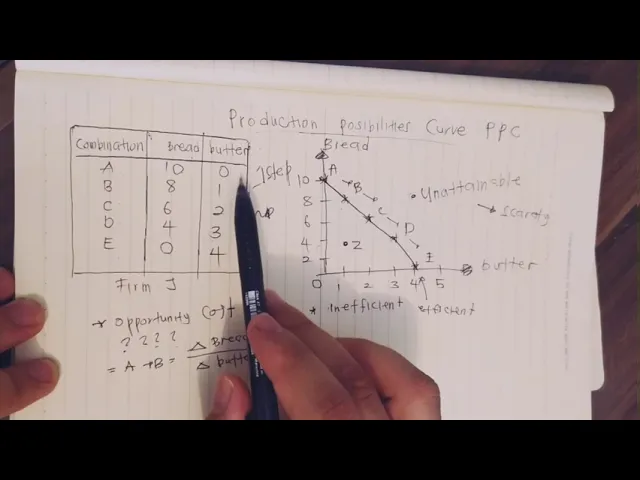 Production posibilities Curve PPC
Combination Bread butter
A 10 0
B 8 1
C 6 2
D 4 3
E 0 4
1step
Firm J
* Opportunity Cost
? ? ? ?
= A → B = Δ Bread
Δ butte
Bread
10
8
6
4
2
0 1 2 3 4 5
butter
A
B
C
D
E
.Z
. Unattainable
→ Scarcity
* inefficient
efficient